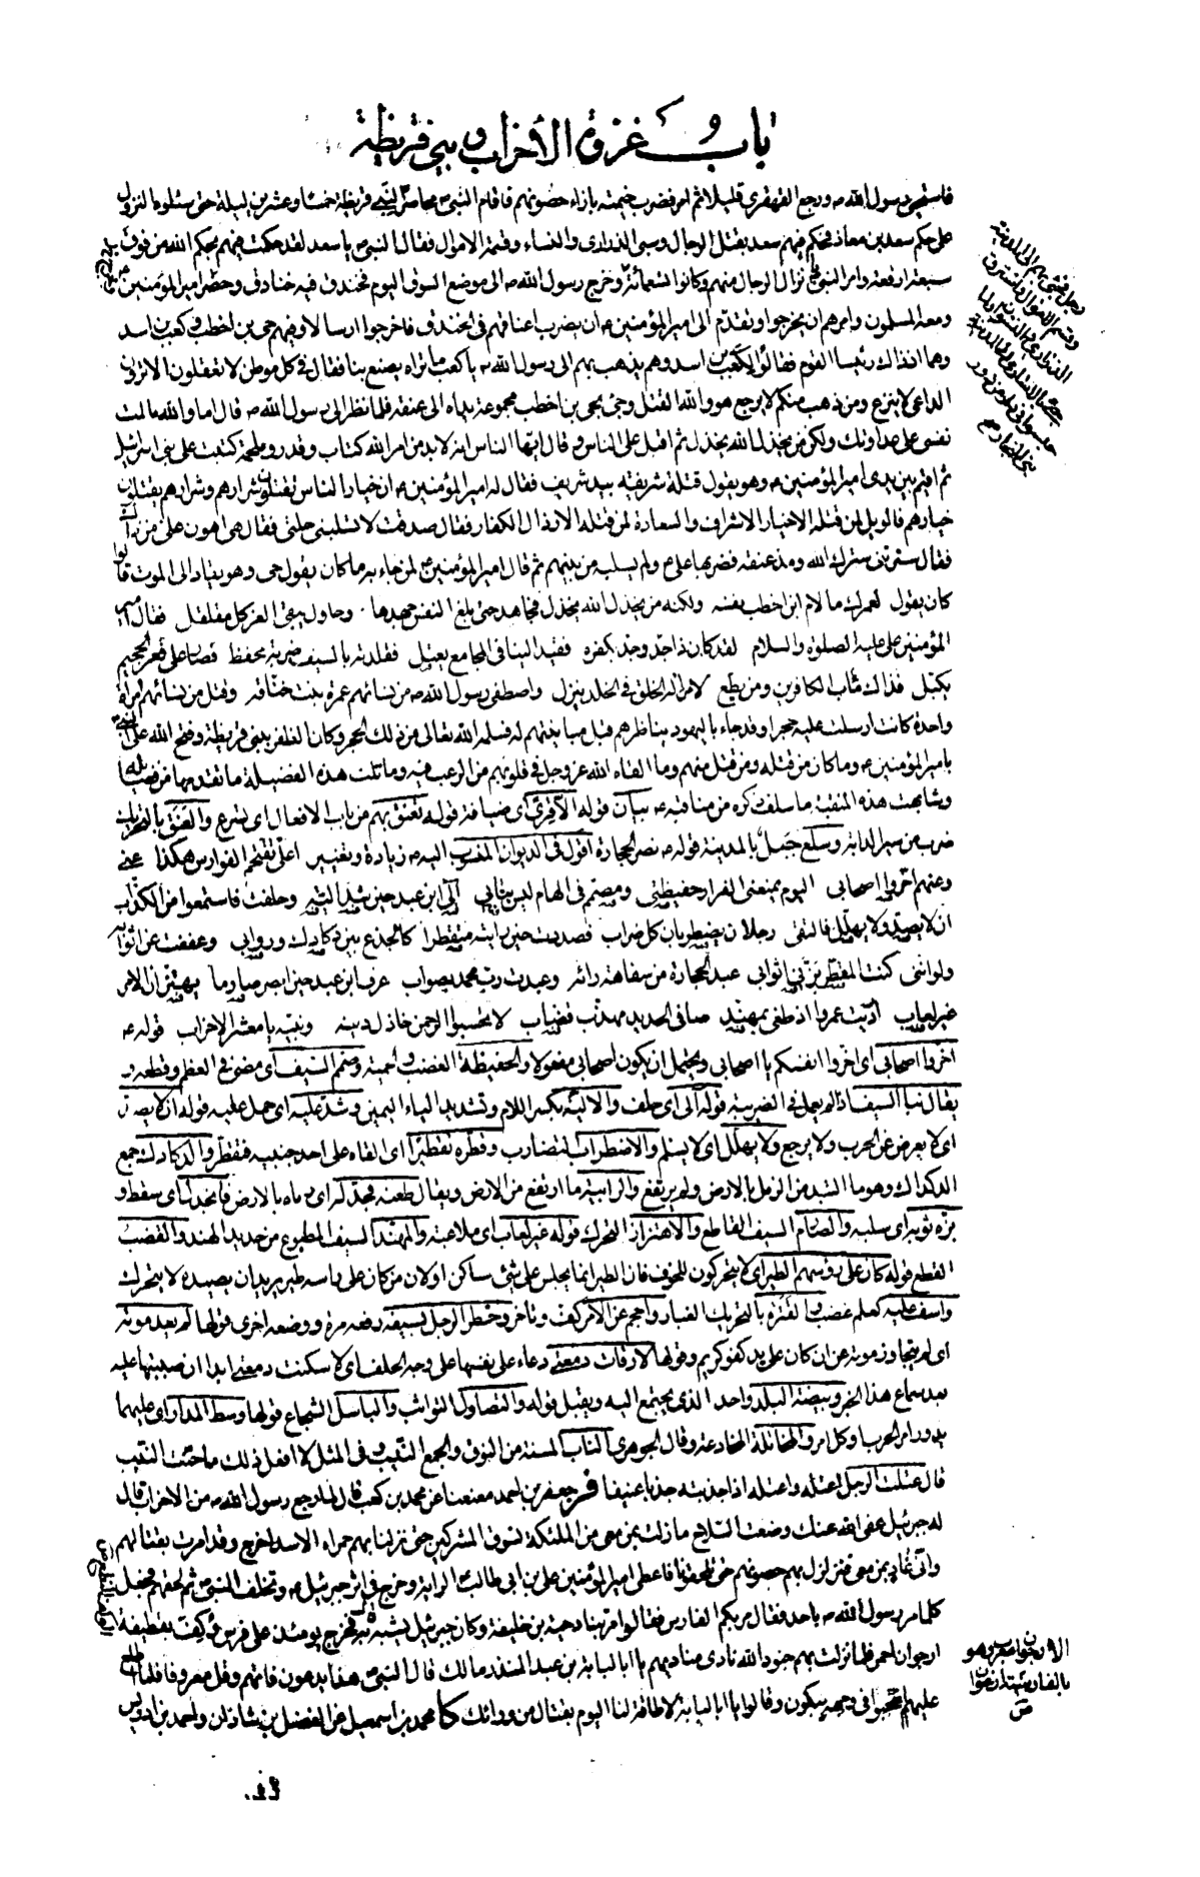 باب و غزوة الأحزاب وبني قريظة
فاستحيى رسول الله ص ورجع القهقرى قليلا ثم امر فضرب خيمته بازاء حصونهم فاقام النبي ص محاصرا لبني قريظة خمسا وعشرين ليلة حتى سئلوه النزول
على حكم سعد بن معاذ فحكم فيهم سعد بقتل الرجال وسبى الذرارى والنساء وقسمة الاموال فقال النبي ص يا سعد لقد حكمت فيهم بحكم الله من فوق
سبعة ارقعة وامر النبي ص بانزال الرجال منهم وكانوا تسعمائة رجل وخرج رسول الله ص الى موضع السوق اليوم فخندق فيه خنادق وحضر امير المؤمنين ع
ومعه المسلمون وامرهم ان يخرجوا وتقدم الى امير المؤمنين ع ان يضرب اعناقهم في الخندق فاخرجوا ارسالا وفيهم حي بن اخطب وكعب بن اسد
وهما اذ ذاك رئيسا القوم فقالوا لكعب بن اسد وهم يذهب بهم الى رسول الله ص يا كعب ما تراه يصنع بنا فقال في كل موطن لا تعقلون الا ترون
الداعى لا ينزع ومن ذهب منكم لا يرجع هو والله القتل وجئ بحي بن اخطب مجموعة يداه الى عنقه فلما نظر الى رسول الله ص قال اما والله ما لمت
نفسى على عداوتك ولكن من يخذل الله يخذل ثم اقبل على الناس وقال ايها الناس انه لا بد من امر الله كتاب وقدر وملحمة كتبت على بنى اسرائيل
ثم اقيم بين يدى امير المؤمنين ع وهو يقول قتلة شريفة بيد شريف فقال له امير المؤمنين ع ان خيار الناس يقتلون شرارهم وشرارهم يقتلون
خيارهم فالويل لمن قتله الاخيار الاشراف والسعادة لمن قتله الارذال الكفار فقال صدقت لا تسلبنى حلتى فقال هي اهون على من ذلك
فقال سترتنى سترك الله ومد عنقه فضربها على ع ولم يسلبه من بينهم ثم قال امير المؤمنين ع لمن جاء به ما كان يقول حي وهو يقاد الى الموت قالوا
كان يقول لعمرك ما لام ابن اخطب نفسه ولكنه من يخذل الله يخذل فجاهد حتى بلغ النفس جهدها وحاول يبغى العز كل مقلقل فقال امير
المؤمنين على عليه الصلوة والسلام لقد كان ذا جد وجد بكفره فقيد الينا في المجامع يعتل فقلدته بالسيف ضربة محفظ فصار على قعر الجحيم
يكبل فذاك مآب الكافرين ومن يطع لامر اله الخلق في الخلد ينزل واصطفى رسول الله ص من نسائهم عمرة بنت خنافة وقتل من نسائهم امرأة
واحدة كانت ارسلت عليه حجرا وقد جاء باليهود يناظرهم قبل مباينتهم له فسلمه الله تعالى من ذلك الحجر وكان الظفر ببنى قريظة وفتح الله على النبي ص
بامير المؤمنين ع وما كان من قتله ومن قتل منهم وما القاه الله عز وجل في قلوبهم من الرعب منه وماثلت هذه الفضيلة ما تقدمها من فضايله
وشابهت هذه المنقبة ما سلف ذكره من مناقبه ع بيان قوله الاقرى اى ضيافة قوله تعنق بهم من باب الافعال اى تسرع والعنق بالتحريك
ضرب من سير الدابة وسلع جبل بالمدينة قوله ع نصر الحجارة اقول في الديوان المنسوب اليه ع زيادة وتغيير اعلى تقتحم الفوارس هكذا عنى
وعنهم اخروا اصحابى اليوم يمنعنى الفرار حفيظتى ومصمم في الهام ليس بنابى آلى ابن عبد حين شد الية وحلفت فاستمعوا من الكذاب
ان لا يصد ولا يهلل فالتقى رجلان يضطربان كل ضراب فصددت حين رأيته متقطرا كالجذع بين دكادك وروابى وعففت عن اثوابه
ولو اننى كنت المقطر بزنى اثوابى عبد الحجارة من سفاهة رأيه وعبدت رب محمد بصواب عرف ابن عبد حين ابصر صارما يهتز ان الامر
غير لعاب ارديت عمروا اذ طغى بمهند صافى الحديد مهذب قضاب لا تحسبوا الرحمن خاذل دينه ونبيه يا معشر الاحزاب قوله ع
اخروا اصحابى اى اخروا انفسكم يا اصحابى ويحتمل ان يكون اصحابى مفعولا والحفيظة الغضب والحمية وصمم السيف اى مضى في العظم وقطعه و
يقال نبا السيف اذا لم يعمل في الضريبة قوله آلى اى حلف والالية بكسر اللام وتشديد الياء اليمين وشد عليه اى حمل عليه قوله ان لا يصد
اى لا يعرض عن الحرب ولا يرجع ولا يهلل اى لا يسلم والاضطراب التضارب وقطره تقطيرا اى القاه على احد جنبيه فتقطر والدكادك جمع
الدكداك وهو ما التبد من الرمل بالارض ولم يرتفع والرابية ما ارتفع من الارض ويقال طعنه فجدله اى رماه بالارض فانجدل اى سقط و
بزه ثوبه اى سلبه والصارم السيف القاطع والاهتزاز التحرك قوله غير لعاب اى ملاعبة والمهند السيف المطبوع من حديد الهند والقضب
القطع قوله كان على رؤسهم الطير اى لا يتحركون للخوف فان الطير انما يجلس على شئ ساكن او لان من كان على راسه طير يريدان يصيده لا يتحرك
واسف عليه كعلم غضب والقترة بالتحريك الغبار واحجم عن الامر كف وتاخر وخطر الرجل بسيفه رفعه مرة ووضعه اخرى قولها لم يعد موته
اى لم يتجاوز موته عن ان كان على يد كفو كريم وقولها لا رقات دمعتى دعاء على نفسها على وجه الحلف اى لا سكنت دمعتى ابدا ان صببتها عليه
بعد سماع هذا الخبر وبيضة البلد واحد الذى يجتمع اليه ويقبل قوله والتصاول التواثب والباسل الشجاع قولها وسط المدار اى عليهما
يدور امر الحرب وكل امر والمخاتلة المخادعة وقال الجوهرى الناب المسنة من النوق والجمع النيب وفى المثل لا افعل ذلك ما حنت النيب
قال عتلت الرجل اعتله واعتله اذا جذبته جذبا عنيفا فر جعفر بن احمد معنعنا عن محمد بن كعب قال لما رجع رسول الله ص من الاحزاب قال
له جبرئيل عفى الله عنك وضعت السلاح ما زلت بمن معى من الملئكة نسوق المشركين حتى نزلنا بهم حمراء الاسد اخرج وقد امرت بقتالهم
وانى غاد بمن معى فنزلزل بهم حصونهم حتى تلحقونا فاعطى امير المؤمنين على بن ابى طالب ع الراية وخرج في اثر جبرئيل ع وتخلف النبي ص ثم لحقهم فجعل
كلما مر رسول الله ص باحد فقال مر بكم الفارس فقالوا مر بنا دحية بن خليفة وكان جبرئيل يشبه به فخرج يومئذ على فرس وكفت بقطيفة
ارجوان احمر فلما نزلت بهم جنود الله نادى مناديهم يا ابا لبابة بن عبد المنذر ما لك قال النبي ص هذا يدعون فاتهم وقل معروفا فلما اطلع
عليهم انتحبوا في وجهه يبكون وقالوا يا ابا لبابة لا طاقة لنا اليوم بقتال من ورائك كا محمد بن اسمعيل عن الفضل بن شاذان واحمد بن ادريس
الارجوان معرب وهو
بالفارسية ارغوان
ص